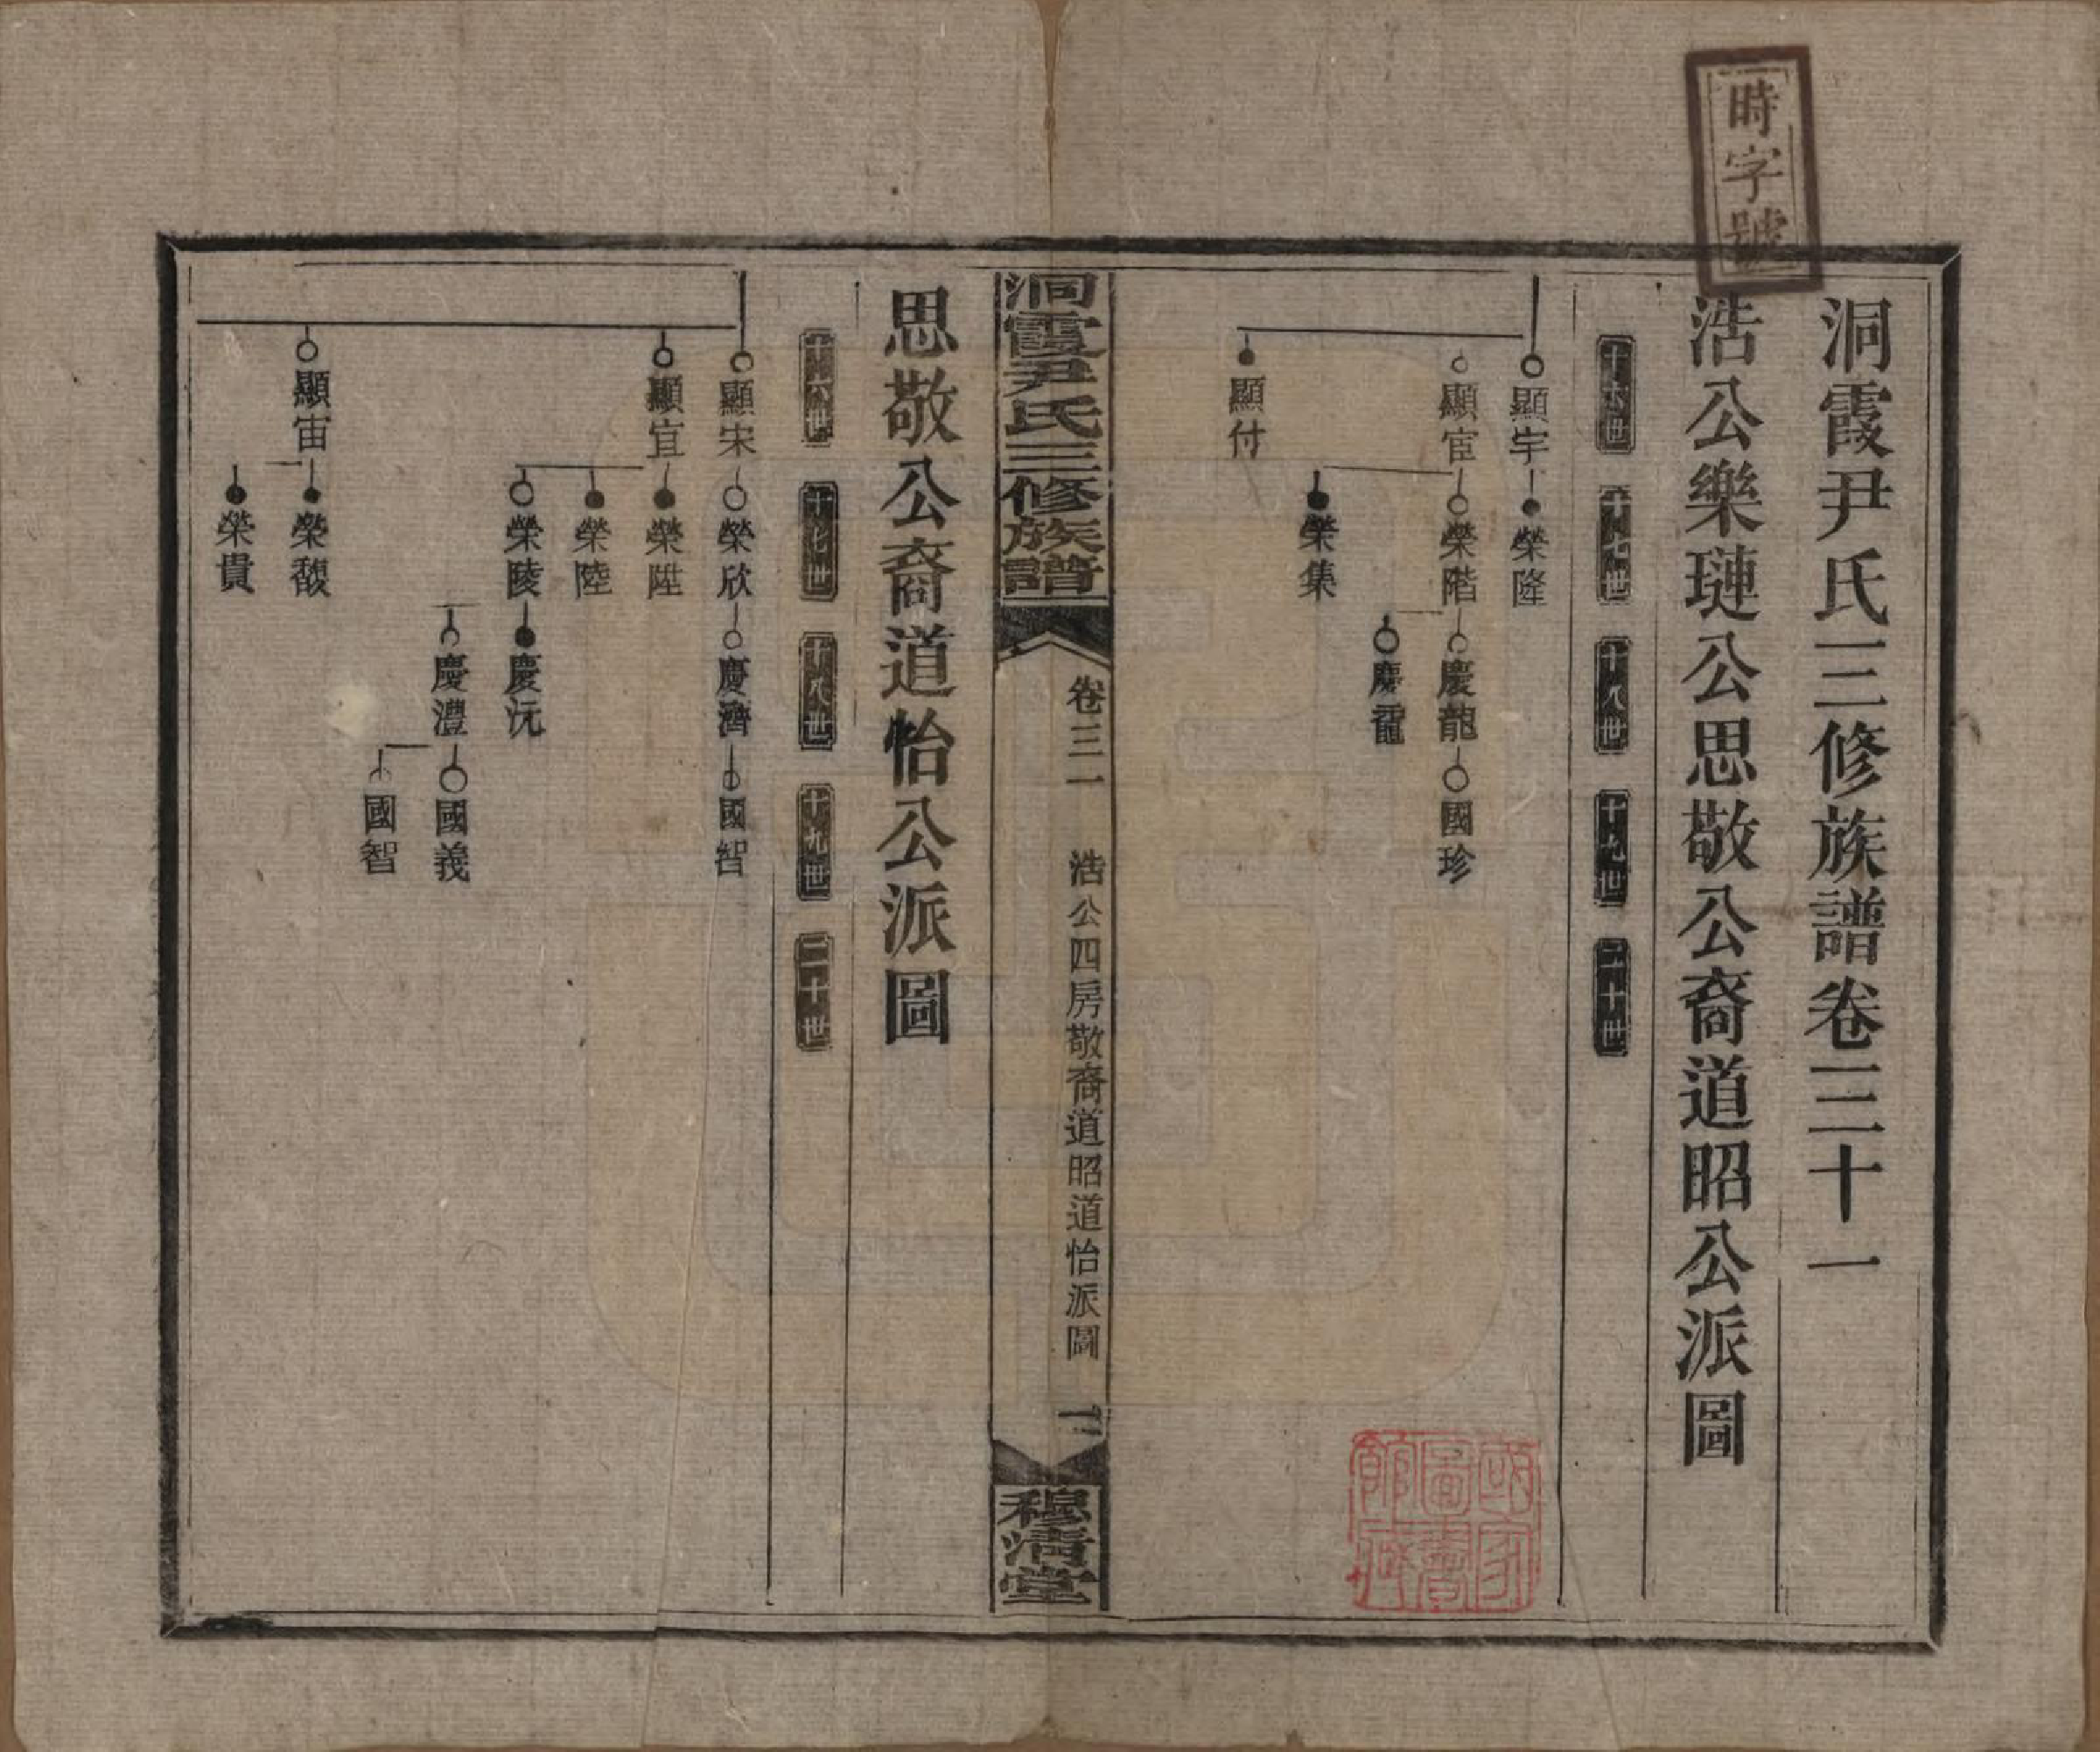 時字號
洞霞尹氏三修族譜卷三十一
浩公樂璉公思敬公裔道昭公派圖
十六世 十七世 十八世 十九世 二十世
顯宇 榮隆
顯宦 榮階 慶龍 國珍
慶龗
榮集
顯付
國家圖書館藏
洞霞尹氏三修族譜 卷三一 浩公四房敬裔道昭道怡派圖 一 穆清堂
思敬公裔道怡公派圖
十六世 十七世 十八世 十九世 二十世
顯宋 榮欣 慶濟 國智
顯宜 榮陞
榮陸
榮陵 慶沅
慶澧 國義
國智
顯宙 榮馥
榮貴